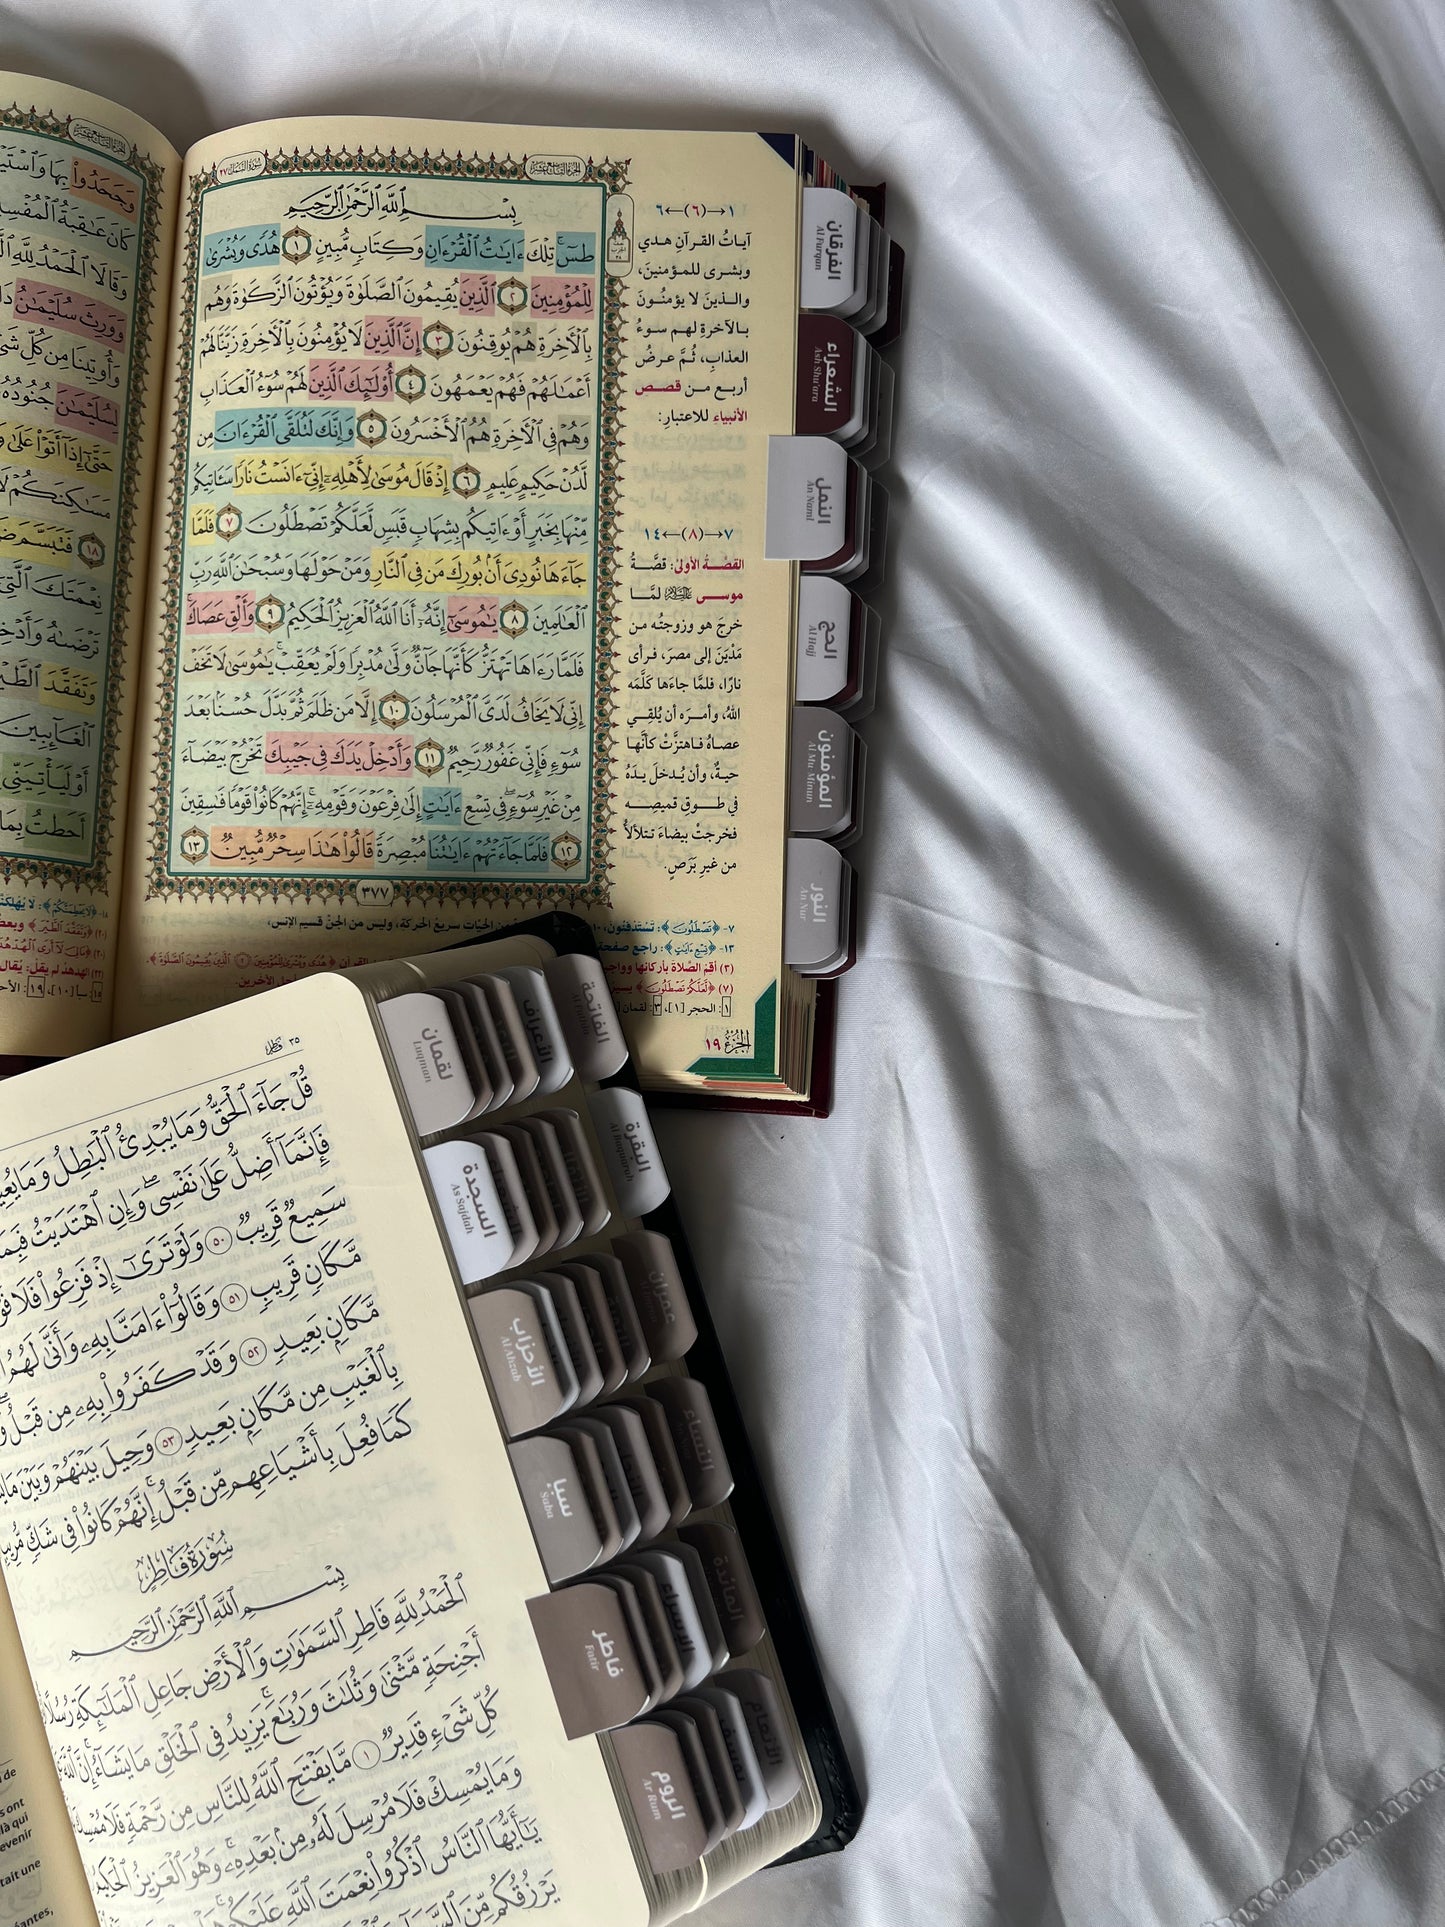 سورة النمل ٢٧
الجزء التاسع عشر
بِسْمِ ٱللَّهِ ٱلرَّحْمَٰنِ ٱلرَّحِيمِ
طسٓ ۚ تِلْكَ ءَايَٰتُ ٱلْقُرْءَانِ وَكِتَابٍ مُّبِينٍ ١ هُدًى وَبُشْرَىٰ
لِلْمُؤْمِنِينَ ٢ ٱلَّذِينَ يُقِيمُونَ ٱلصَّلَوٰةَ وَيُؤْتُونَ ٱلزَّكَوٰةَ وَهُم
بِٱلْءَاخِرَةِ هُمْ يُوقِنُونَ ٣ إِنَّ ٱلَّذِينَ لَا يُؤْمِنُونَ بِٱلْءَاخِرَةِ زَيَّنَّا لَهُمْ
أَعْمَٰلَهُمْ فَهُمْ يَعْمَهُونَ ٤ أُو۟لَٰٓئِكَ ٱلَّذِينَ لَهُمْ سُوٓءُ ٱلْعَذَابِ
وَهُمْ فِى ٱلْءَاخِرَةِ هُمُ ٱلْأَخْسَرُونَ ٥ وَإِنَّكَ لَتُلَقَّى ٱلْقُرْءَانَ مِن
لَّدُنْ حَكِيمٍ عَلِيمٍ ٦ إِذْ قَالَ مُوسَىٰ لِأَهْلِهِۦٓ إِنِّىٓ ءَانَسْتُ نَارًا سَـَٔاتِيكُم
مِّنْهَا بِخَبَرٍ أَوْ ءَاتِيكُم بِشِهَابٍ قَبَسٍ لَّعَلَّكُمْ تَصْطَلُونَ ٧ فَلَمَّا
جَآءَهَا نُودِىَ أَنۢ بُورِكَ مَن فِى ٱلنَّارِ وَمَنْ حَوْلَهَا وَسُبْحَٰنَ ٱللَّهِ رَبِّ
ٱلْعَٰلَمِينَ ٨ يَٰمُوسَىٰٓ إِنَّهُۥٓ أَنَا ٱللَّهُ ٱلْعَزِيزُ ٱلْحَكِيمُ ٩ وَأَلْقِ عَصَاكَ ۚ
فَلَمَّا رَءَاهَا تَهْتَزُّ كَأَنَّهَا جَآنٌّ وَلَّىٰ مُدْبِرًا وَلَمْ يُعَقِّبْ ۚ يَٰمُوسَىٰ لَا تَخَفْ
إِنِّى لَا يَخَافُ لَدَىَّ ٱلْمُرْسَلُونَ ١٠ إِلَّا مَن ظَلَمَ ثُمَّ بَدَّلَ حُسْنًۢا بَعْدَ
سُوٓءٍ فَإِنِّى غَفُورٌ رَّحِيمٌ ١١ وَأَدْخِلْ يَدَكَ فِى جَيْبِكَ تَخْرُجْ بَيْضَآءَ
مِنْ غَيْرِ سُوٓءٍ ۖ فِى تِسْعِ ءَايَٰتٍ إِلَىٰ فِرْعَوْنَ وَقَوْمِهِۦٓ ۚ إِنَّهُمْ كَانُوا۟ قَوْمًا فَٰسِقِينَ
١٢ فَلَمَّا جَآءَتْهُمْ ءَايَٰتُنَا مُبْصِرَةً قَالُوا۟ هَٰذَا سِحْرٌ مُّبِينٌ ١٣
٣٧٧
١←(٦)→٦
آياتُ القرآنِ هدي
وبشرى للمؤمنينَ،
والذينَ لا يؤمنُونَ
بالآخرةِ لهم سوءُ
العذابِ، ثُمَّ عرضُ
أربع من قصص
الأنبياءِ للاعتبارِ:
٧←(٨)→١٤
القصَّةُ الأولى: قصَّةُ
موسى عليه السلام لمَّا
خرجَ هو وزوجتُه من
مَدْيَنَ إلى مصرَ، فرأى
نارًا، فلمَّا جاءَها كَلَّمَه
اللهُ، وأمرَه أن يُلقِي
عصاهُ فاهتزَّتْ كأنَّها
حيةٌ، وأن يُدخلَ يدَهُ
في طوقِ قميصِه
فخرجتْ بيضاءَ تتلألأُ
من غيرِ بَرَصٍ.
٧- ﴿تَصْطَلُونَ﴾: تَسْتَدْفئونَ، ١٠
من الحيّات سريعُ الحركةِ، وليس من الجنِّ قسيم الإنس،
١٣- ﴿تِسْعِ ءَايَٰتٍ﴾: راجع صفحة
(٣) أقم الصَّلاة بأركانها وواجب
(٧) ﴿لَّعَلَّكُمْ تَصْطَلُونَ﴾
١: الحجر [١]، ٣: لقمان
الجزء ١٩
وَجَحَدُوا۟ بِهَا وَٱسْتَيْ
كَانَ عَٰقِبَةُ ٱلْمُفْسِ
وَقَالَا ٱلْحَمْدُ لِلَّهِ
وَوَرِثَ سُلَيْمَٰنُ
وَأُوتِينَا مِن كُلِّ شَىْ
لِسُلَيْمَٰنَ جُنُودُهُ
حَتَّىٰٓ إِذَآ أَتَوْا۟ عَلَىٰ وَ
مَسَٰكِنَكُمْ لَا
١٨ فَتَبَسَّمَ ضَ
نِعْمَتَكَ ٱلَّتِىٓ
تَرْضَىٰهُ وَأَدْخِ
وَتَفَقَّدَ ٱلطَّيْ
ٱلْغَآئِبِينَ
أَوْ لَيَأْتِيَنِّى
أَحَطتُ بِمَا
الفرقان
Al Furqan
الشعراء
Ash Shu'ara
النمل
An Naml
الحج
Al Hajj
المؤمنون
Al Mu'Minun
النور
An Nur
٣٥ فاطر
قُلْ جَآءَ ٱلْحَقُّ وَمَا يُبْدِئُ ٱلْبَٰطِلُ وَمَا يُعِي
فَإِنَّمَآ أَضِلُّ عَلَىٰ نَفْسِى ۖ وَإِنِ ٱهْتَدَيْتُ فَبِمَ
سَمِيعٌ قَرِيبٌ ٥٠ وَلَوْ تَرَىٰٓ إِذْ فَزِعُوا۟ فَلَا فَوْ
مَّكَانٍ قَرِيبٍ ٥١ وَقَالُوٓا۟ ءَامَنَّا بِهِۦ وَأَنَّىٰ لَهُمُ
مَّكَانٍۭ بَعِيدٍ ٥٢ وَقَدْ كَفَرُوا۟ بِهِۦ مِن قَبْلُ ۖ
بِٱلْغَيْبِ مِن مَّكَانٍۭ بَعِيدٍ ٥٣ وَحِيلَ بَيْنَهُمْ وَبَيْنَ مَا
كَمَا فُعِلَ بِأَشْيَاعِهِم مِّن قَبْلُ ۚ إِنَّهُمْ كَانُوا۟ فِى شَكٍّ مُّرِ
سُورَةُ فَاطِرٍ
بِسْمِ ٱللَّهِ ٱلرَّحْمَٰنِ ٱلرَّحِيمِ
ٱلْحَمْدُ لِلَّهِ فَاطِرِ ٱلسَّمَٰوَٰتِ وَٱلْأَرْضِ جَاعِلِ ٱلْمَلَٰٓئِكَةِ رُسُلًا
أَجْنِحَةٍ مَّثْنَىٰ وَثُلَٰثَ وَرُبَٰعَ ۚ يَزِيدُ فِى ٱلْخَلْقِ مَا يَشَآءُ ۚ إِنَّ ٱللَّهَ
كُلِّ شَىْءٍ قَدِيرٌ ١ مَّا يَفْتَحِ ٱللَّهُ لِلنَّاسِ مِن رَّحْمَةٍ فَلَا مُمْسِكَ
وَمَا يُمْسِكْ فَلَا مُرْسِلَ لَهُۥ مِنۢ بَعْدِهِۦ ۚ وَهُوَ ٱلْعَزِيزُ ٱلْحَكِيمُ
يَٰٓأَيُّهَا ٱلنَّاسُ ٱذْكُرُوا۟ نِعْمَتَ ٱللَّهِ عَلَيْكُمْ
يَرْزُقُكُم مِّنَ
لقمان
Luqman
الأعراف
الفاتحة
Al Fatiha
السجدة
As Sajdah
البقرة
Al Baqarah
الأحزاب
Al Ahzab
عمران
سبأ
Saba
النساء
فاطر
Fatir
الإسراء
المائدة
الروم
Ar Rum
يوسف
الأنعام
de
s ont
là qui
evenir
tait une